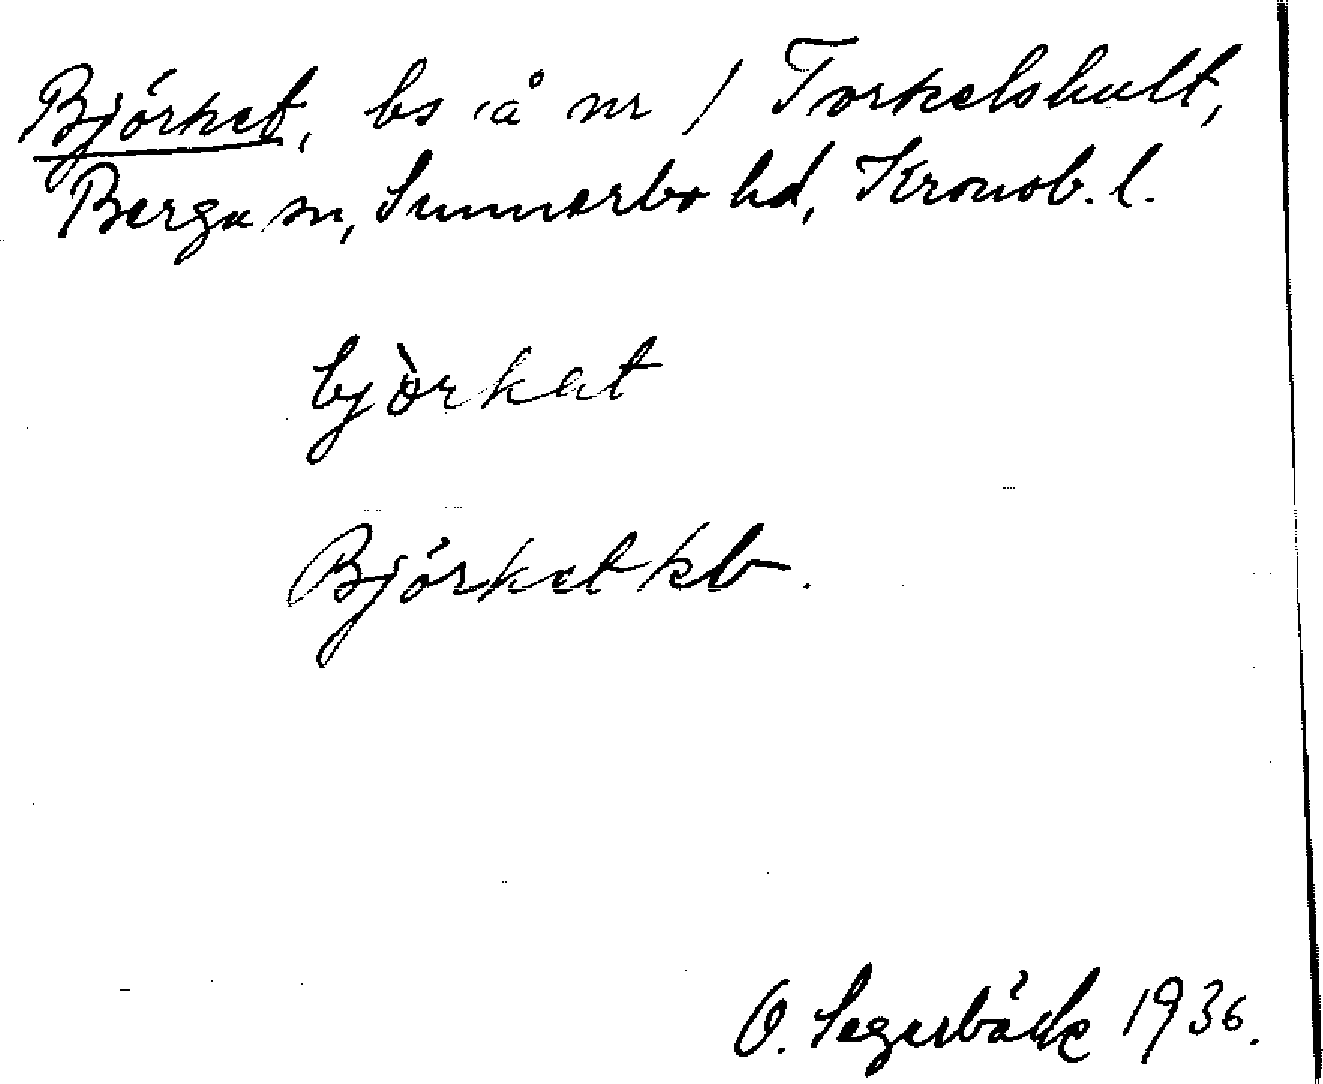 Björket, bs å nr 1 Torkelshult,
Berga sn, Sunnerbo hd, Kronob. l.
bjòrkat
Björket kb.
O. Segerbäck 1936.